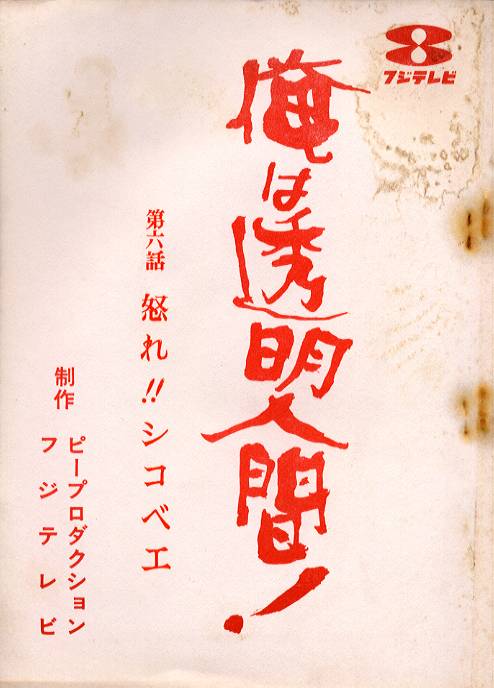 フジテレビ
俺は透明人間!
第六話 怒れ!!シコベエ
制作 ピープロダクション
フジテレビ